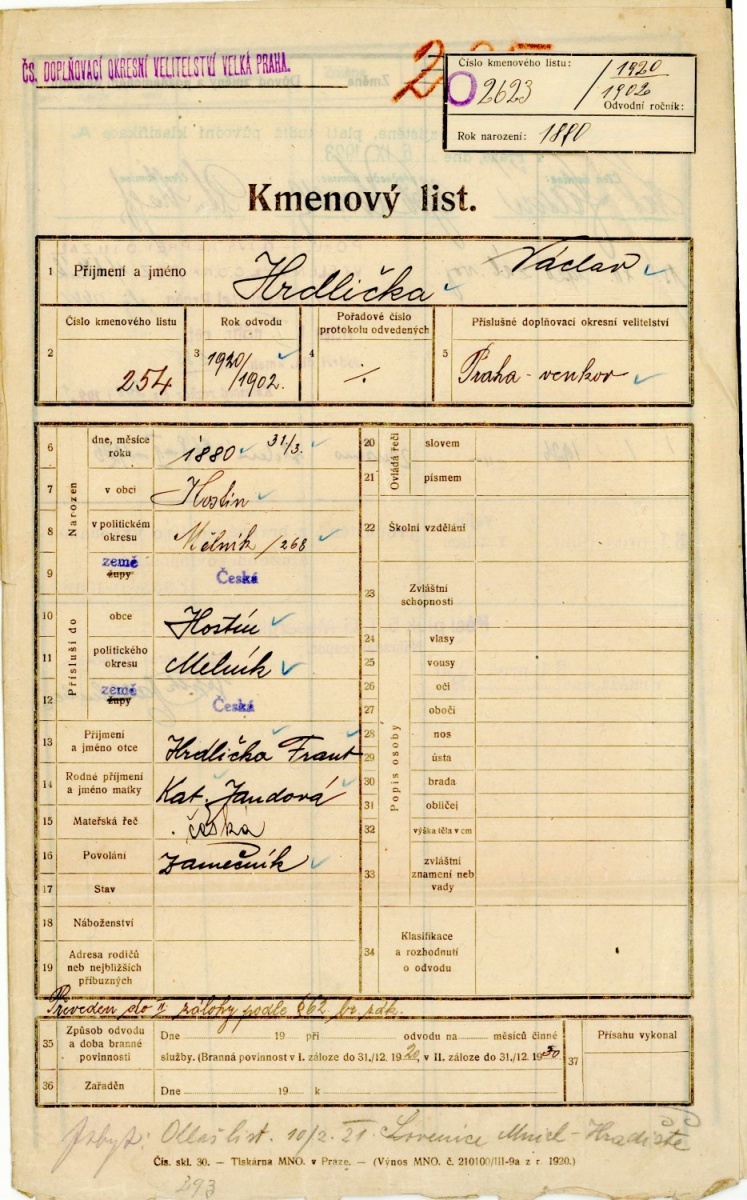 ČS. DOPLŇOVACÍ OKRESNÍ VELITELSTVÍ VELKÁ PRAHA.
Číslo kmenového listu:
2623 / 1920
1902
Odvodní ročník:
Rok narození: 1880
Kmenový list.
1 Příjmení a jméno Hrdlička Václav
2 Číslo kmenového listu 254
3 Rok odvodu 1920/1902.
4 Pořadové číslo protokolu odvedených ./.
5 Příslušné doplňovací okresní velitelství Praha-venkov
Narozen
6 dne, měsíce roku 1880 31/3.
7 v obci Hostin
8 v politickém okresu Mělník/268
9 země župy Česká
Přísluší do
10 obce Hostín
11 politického okresu Melník
12 země župy Česká
13 Příjmení a jméno otce Hrdlička Frant
14 Rodné příjmení a jméno matky Kat. Jandová
15 Mateřská řeč česká
16 Povolání zamečník
17 Stav
18 Náboženství
19 Adresa rodičů neb nejbližších příbuzných
Ovládá řeči
20 slovem
21 písmem
22 Školní vzdělání
23 Zvláštní schopnosti
Popis osoby
24 vlasy
25 vousy
26 oči
27 obočí
28 nos
29 ústa
30 brada
31 obličej
32 výška těla v cm
33 zvláštní znamení neb vady
34 Klasifikace a rozhodnutí o odvodu
Převeden do II zálohy podle §62 br. zák.
35 Způsob odvodu a doba branné povinnosti
Dne 19 při odvodu na měsíců činné
služby. (Branná povinnost v I. záloze do 31./12. 1920, v II. záloze do 31./12. 1930
36 Zařaděn Dne 19 k
37 Přísahu vykonal
Pobyt: Ohlaš. list. 10/2. 21. Mnich-Hradiště
Čís. skl. 30. — Tiskárna MNO. v Praze. — (Výnos MNO. č. 210100/III-9a z r. 1920.)
293